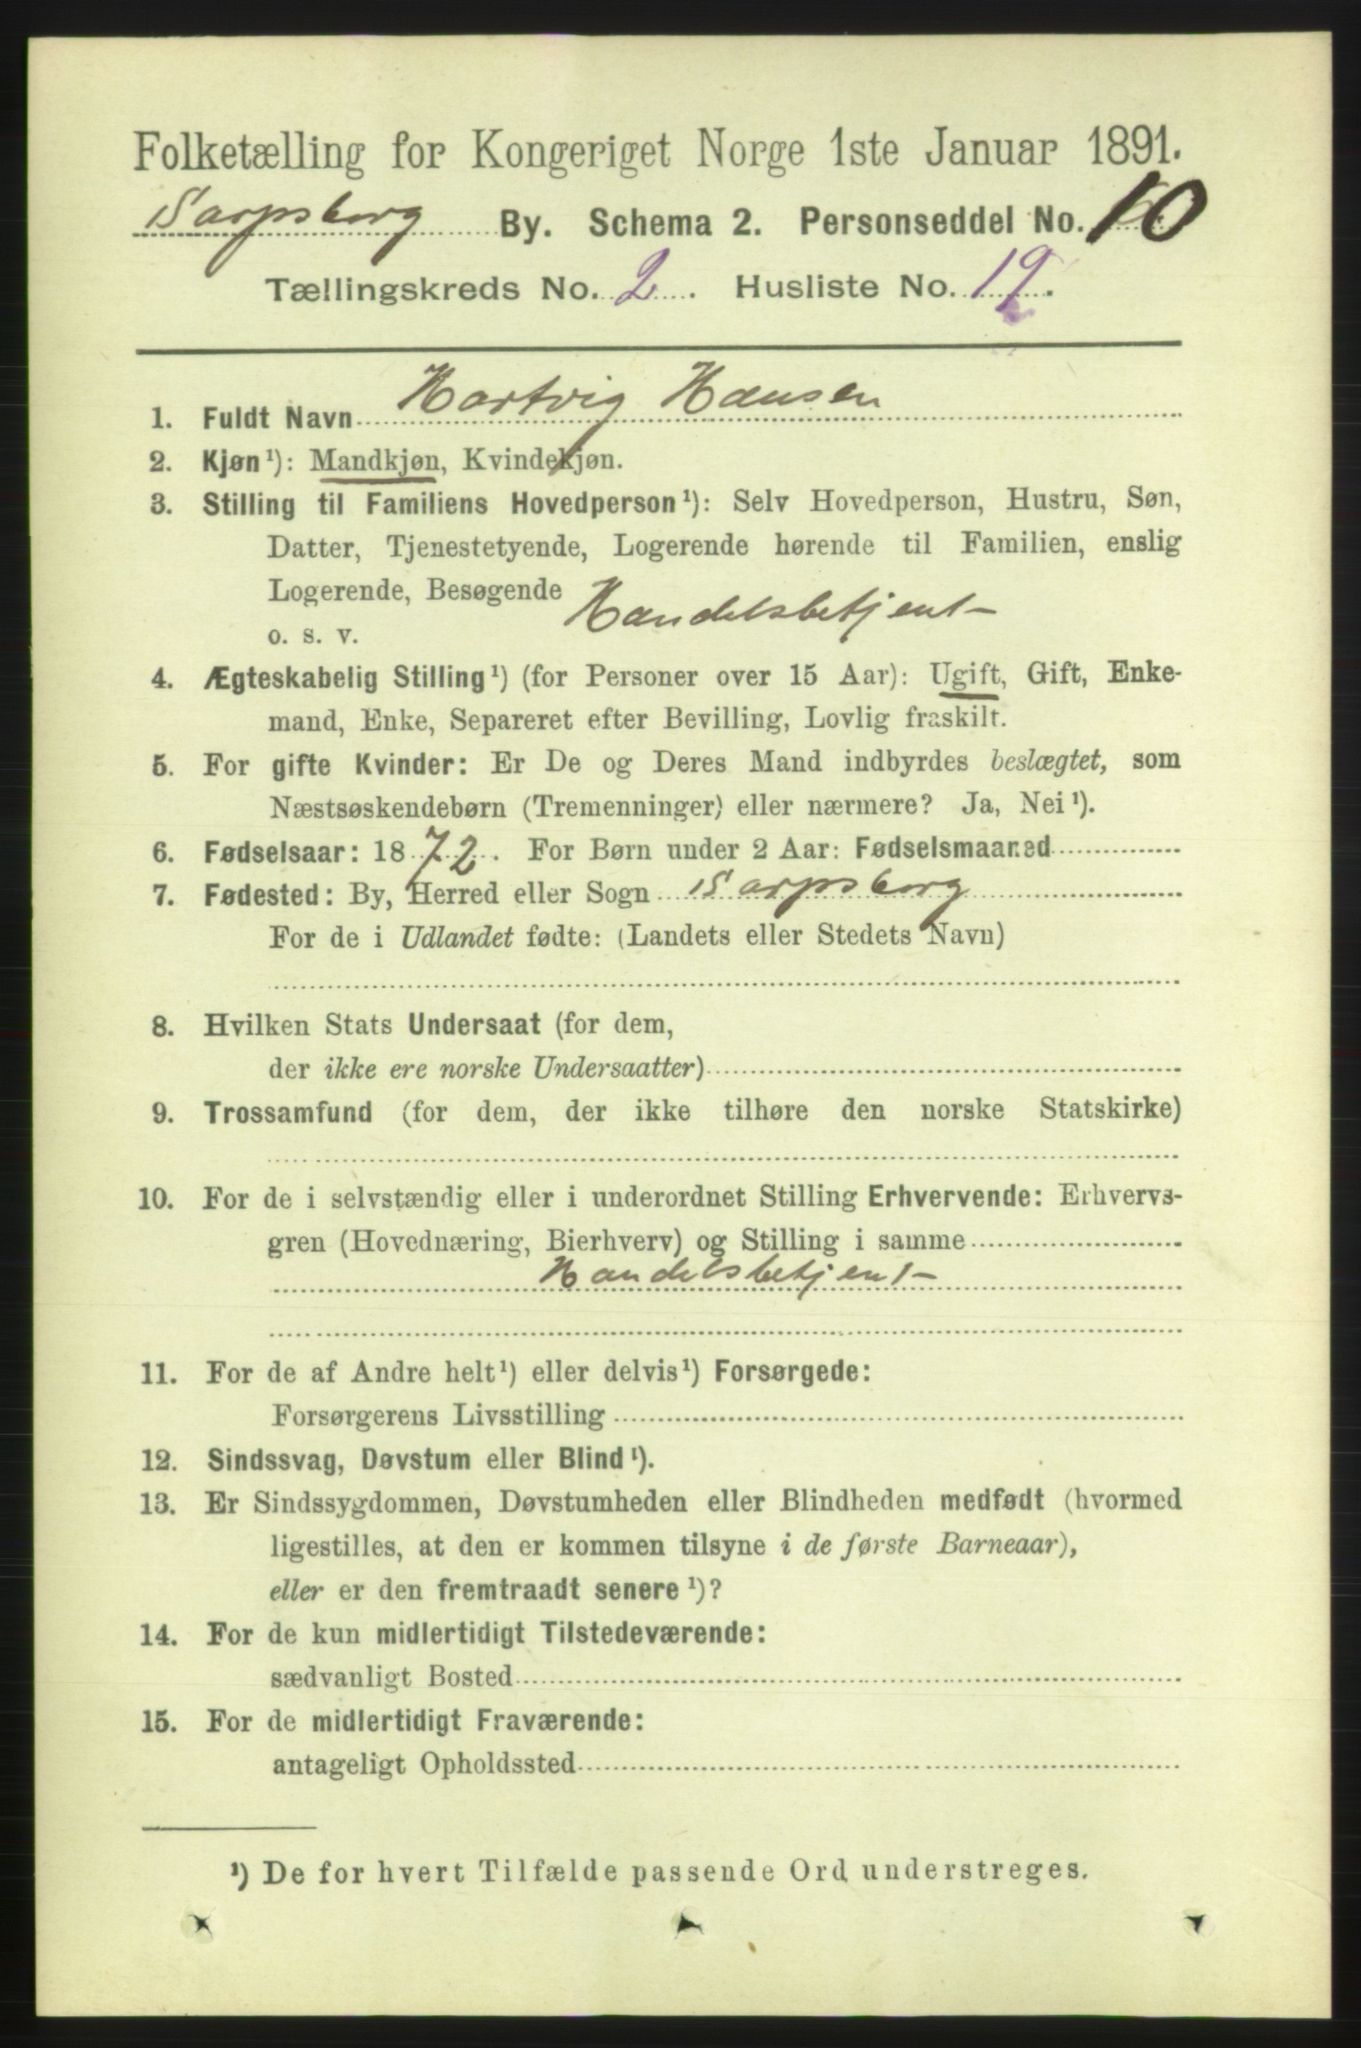 Folketælling for Kongeriget Norge 1ste Januar 1891.
Sarpsborg By. Schema 2. Personseddel No. 10
Tællingskreds No. 2. Husliste No. 12.
1. Fuldt Navn Hartvig Hansen
2. Kjøn¹): Mandkjøn, Kvindekjøn.
3. Stilling til Familiens Hovedperson¹): Selv Hovedperson, Hustru, Søn,
Datter, Tjenestetyende, Logerende hørende til Familien, enslig
Logerende, Besøgende Handelsbetjent
o. s. v.
4. Ægteskabelig Stilling¹) (for Personer over 15 Aar): Ugift, Gift, Enke-
mand, Enke, Separeret efter Bevilling, Lovlig fraskilt.
5. For gifte Kvinder: Er De og Deres Mand indbyrdes beslægtet, som
Næstsøskendebørn (Tremenninger) eller nærmere? Ja, Nei¹).
6. Fødselsaar: 1872. For Børn under 2 Aar: Fødselsmaaned
7. Fødested: By, Herred eller Sogn Sarpsborg
For de i Udlandet fødte: (Landets eller Stedets Navn)
8. Hvilken Stats Undersaat (for dem,
der ikke ere norske Undersaatter)
9. Trossamfund (for dem, der ikke tilhøre den norske Statskirke)
10. For de i selvstændig eller i underordnet Stilling Erhvervende: Erhvervs-
gren (Hovednæring, Bierhverv) og Stilling i samme
Handelsbetjent
11. For de af Andre helt¹) eller delvis¹) Forsørgede:
Forsørgerens Livsstilling
12. Sindssvag, Døvstum eller Blind¹).
13. Er Sindssygdommen, Døvstumheden eller Blindheden medfødt (hvormed
ligestilles, at den er kommen tilsyne i de første Barneaar),
eller er den fremtraadt senere¹)?
14. For de kun midlertidigt Tilstedeværende:
sædvanligt Bosted
15. For de midlertidigt Fraværende:
antageligt Opholdssted
¹) De for hvert Tilfælde passende Ord understreges.